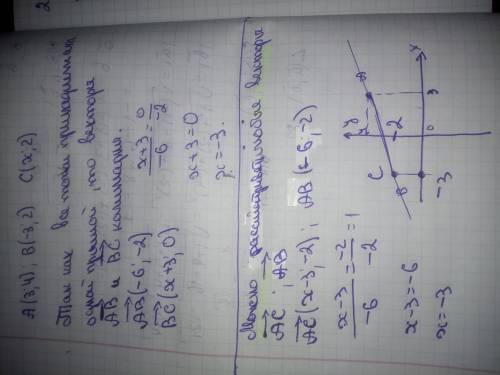 A(3;4), B(-3;2) C(x;2)
Так как все точки принадлежат
одной прямой, то вектора
AB и BC коллинеарны.
AB(-6;-2)
BC(x+3;0)
x+3/-6 = 0/-2
x+3=0
x=-3.
Можно рассмотреть вектора
AC; AB
AC(x-3;-2); AB(-6;-2)
x-3/-6 = -2/-2 = 1
x-3=-6
x=-3
y
4
A
2
C
B
-3
0
3
x